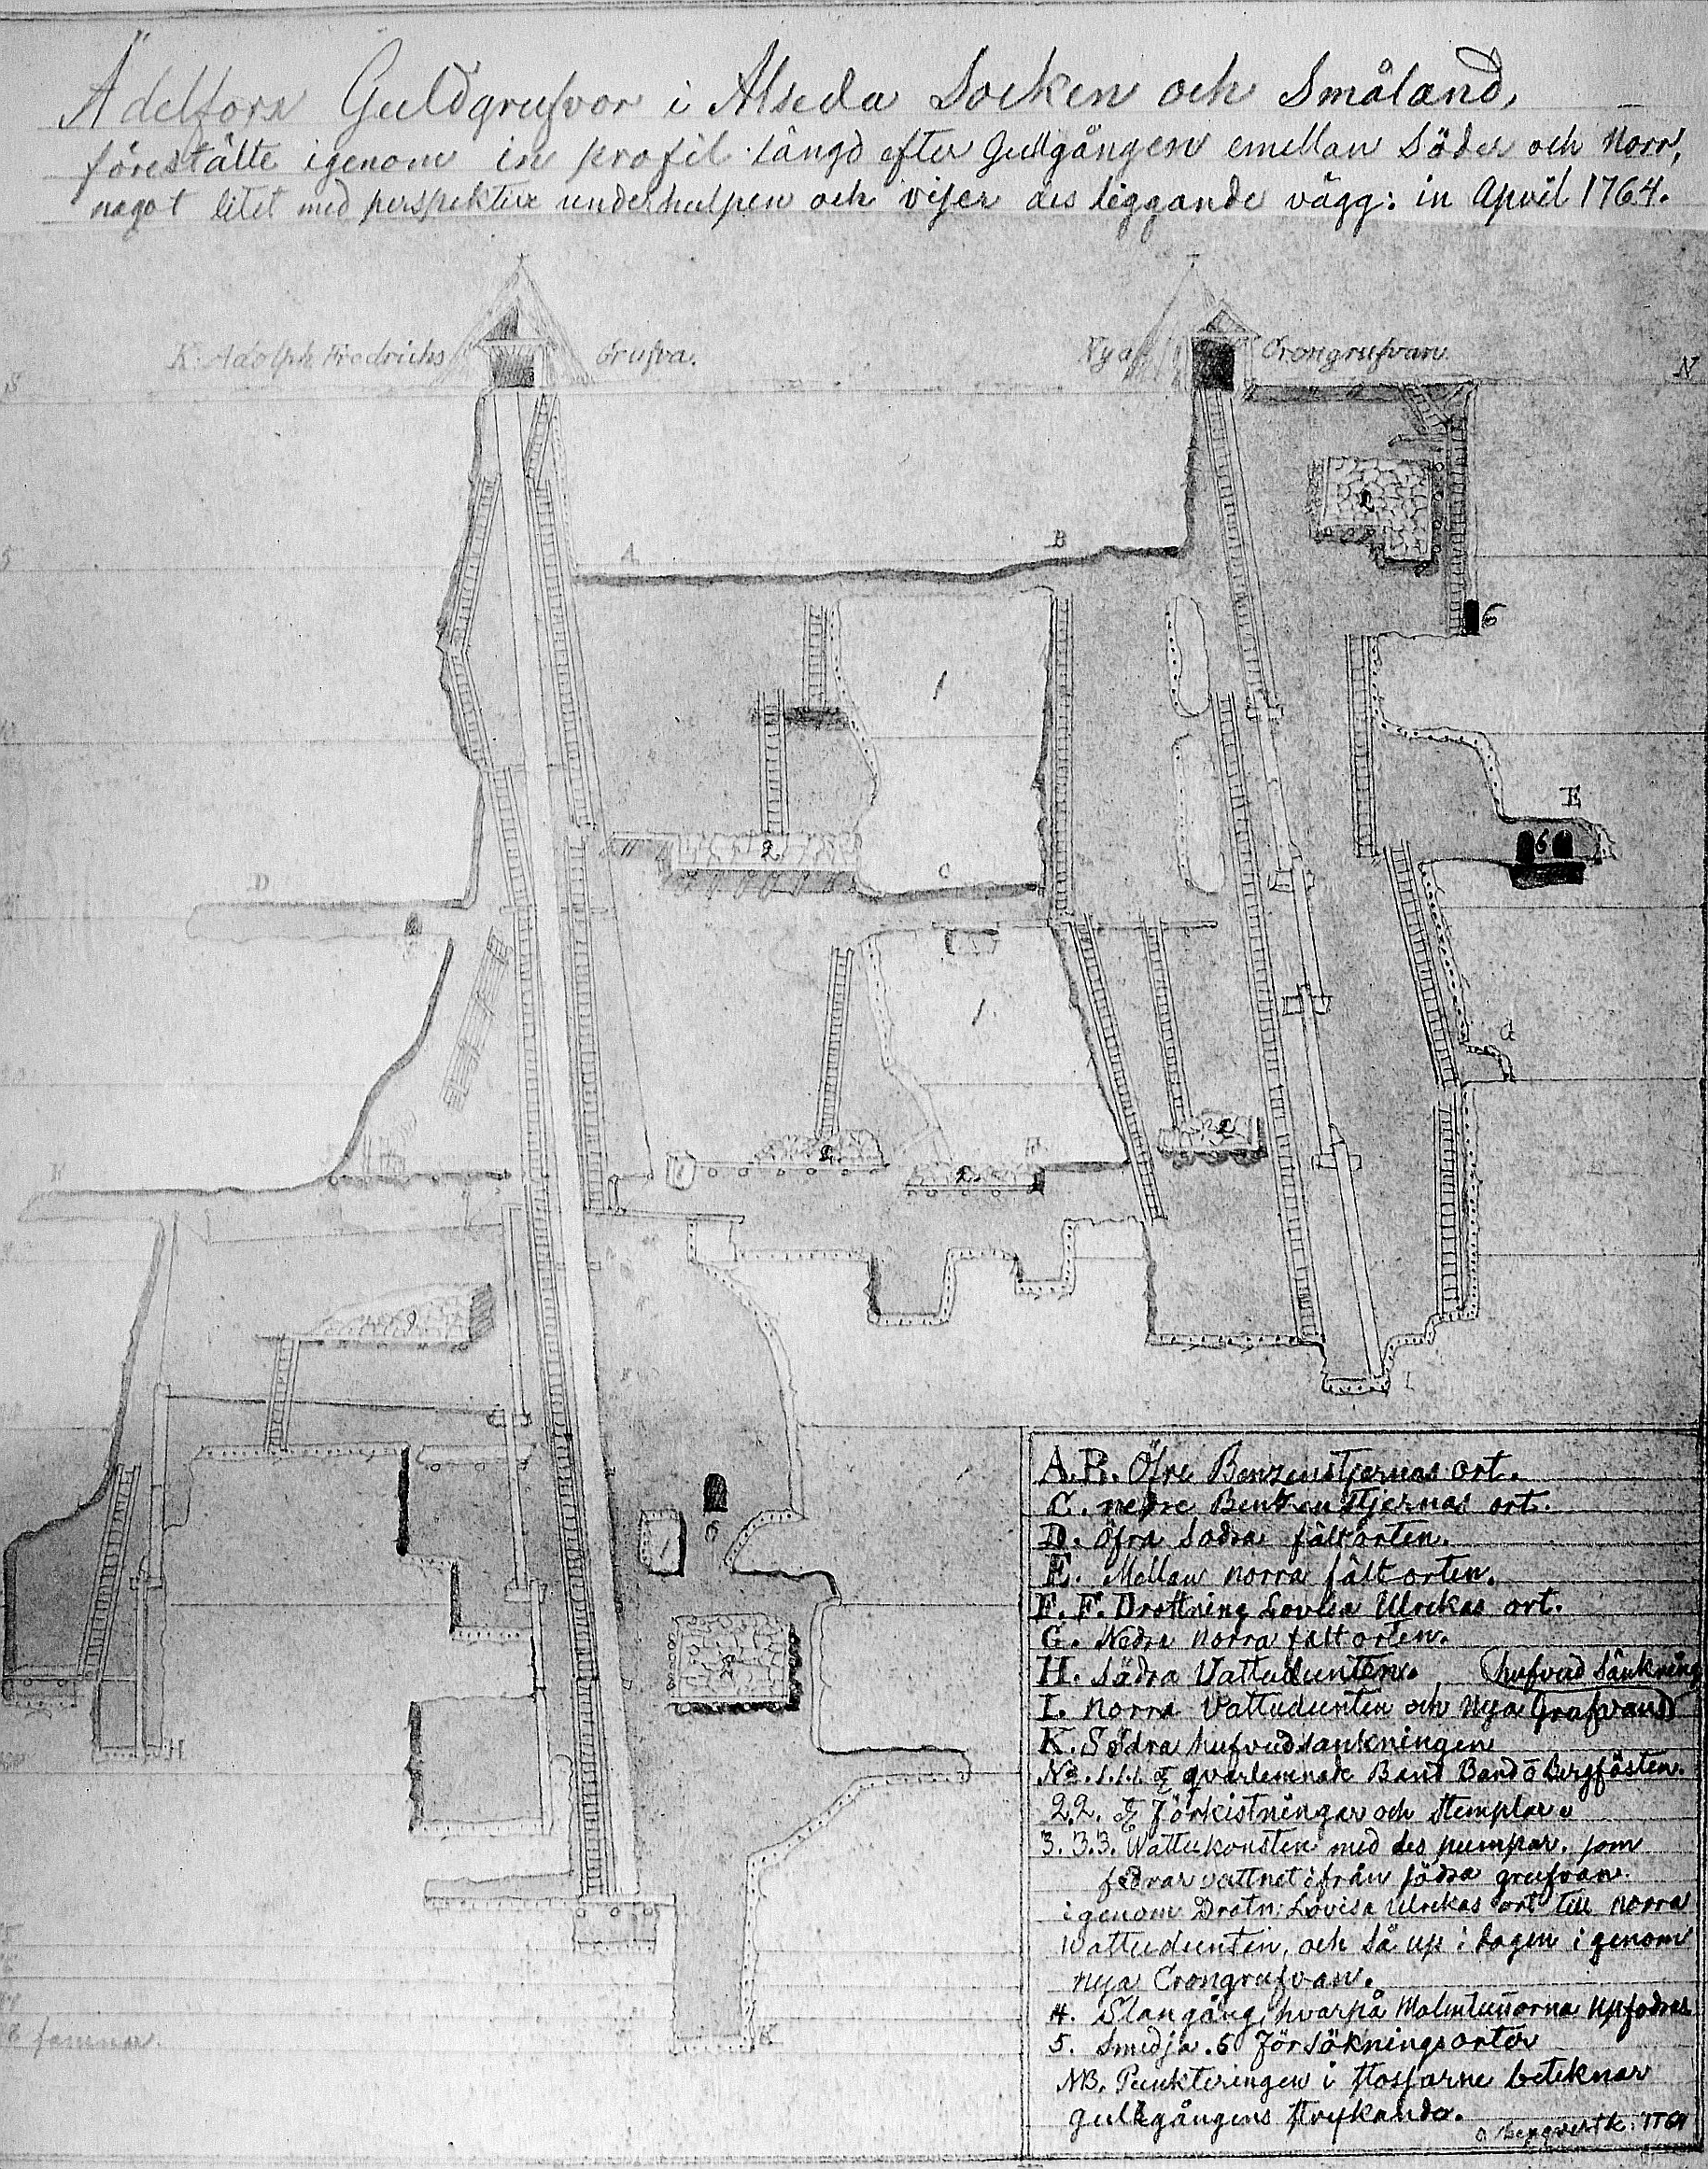 Ädelfors Guldgrufvor i Alseda Socken och Småland,
förestälte igenom in profil längd efter Gullgången emellan Söder och Norr,
nagot litet med perspektiv underhulpen och viser des liggande vägg: in April 1764.
K. Adolph Fredrichs Grufva.
Nya Crongrufvan.
S
N
A
B
5
2
6
1
10
E
6
2
C
D
1
G
2
2
2
F
K
2
1
6
2
H
I
K
famnar.
A.B. Öfre Benzenstjernas ort.
C. nedre Bentzenstjernas ort.
D. Öfra Södra fältorten.
E. Mellan norra fält orten.
F. F. Drottning Lovisa Ulrickas ort.
G. Nedra norra fält orten.
H. Södra Vattudunten.
I. Norra Vattudunten och Nya Grufvans hufvud Sänkning
K. Södra hufvudsankningen
No. 1.1.1. & qvarlemnade Band Band o Bergfästen.
2.2. & Förkistningar och Stemplar
3. 3.3. Wattukonsten med des pumpar. som
fodrar vattnet ifrån södra grufvan
igenom Drotn: Lovisa Ulrikas ort till norra
Wattudunten, och så up i dagen igenom
nya Crongrufvan.
4. Stangång, hvarpå Malmtunorna upfodras
5. Smedja. 6 Försökningsorter
NB. Punkteringen i stossarne beteknar
gullgångens strykande.
1764